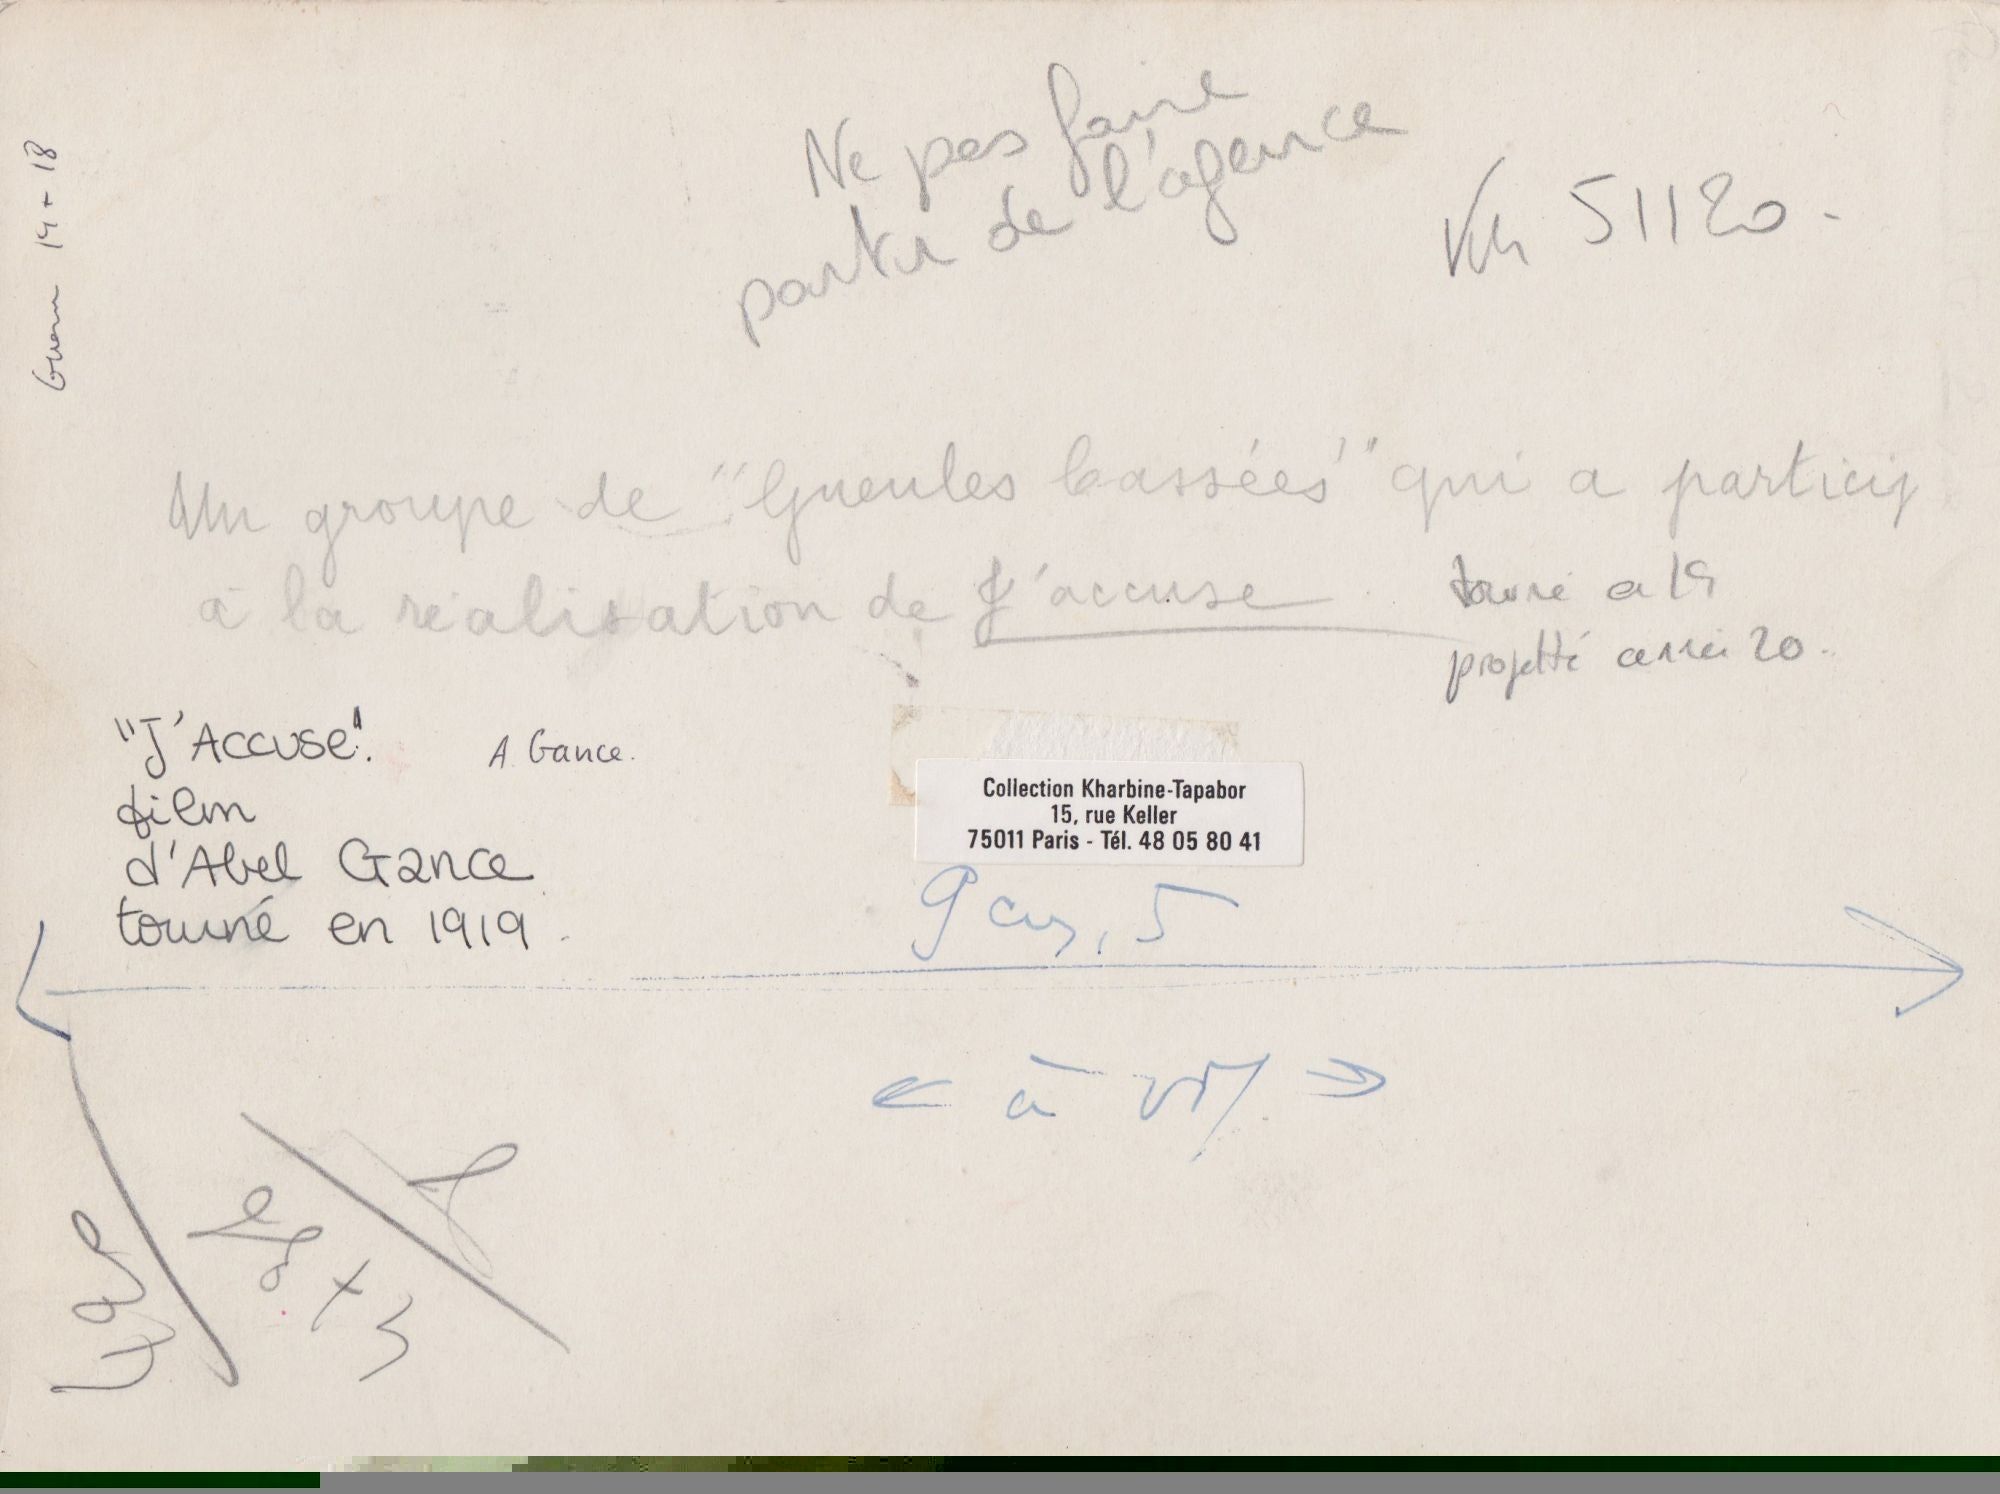 Guerre 14-18
Ne pas faire
partir de l'agence
51120.
Un groupe de "Gueules Cassées" qui a particip
à la réalisation de J'accuse
tourné en 19
projetté année 20..
"J'Accuse". A Gance.
film
d'Abel Gance
tourné en 1919.
Collection Kharbine-Tapabor
15, rue Keller
75011 Paris - Tél. 48 05 80 41
9 cm, 5